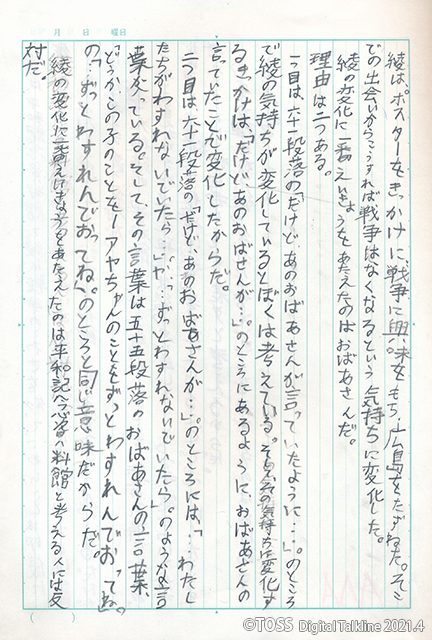 月 日 曜日
綾は、ポスターをきっかけに、戦争に興味をもち、広島をたずねた。そこ
での出会いからこうすれば戦争はなくなるという気持ちに変化した。
綾の変化に一番えいきょうをあたえたのはおばあさんだ。
理由は二つある。
一つ目は、六十一段落の「だけど、あのおばあさんが言っていたように…」。のところ
で綾の気持ちが変化しているとぼくは考えている。そしてその気持ちは変化す
るきっかけは「だけど、あのおばさんが…」。のところにあるように、おばあさんの
言っていたことで変化したからだ。
二つ目は六十一段落の「だけど、あのおばあさんが…」。のところには、「…わたし
たちがわすれないでいたら…」や、「…ずっとわすれないでいたら」。のような言
葉が入っている。そして、その言葉は五十五段落のおばあさんの言葉、
「どうかこの子のことを―アヤちゃんのことをずっとわすれんでおってね」。
の「…ずっとわすれんでおってね」。のところと同じ意味だからだ。
綾の変化に一番えいきょうをあたえたのは平和記念資料館と考える人には反
対だ。
©TOSS Digital Talkline 2021.4